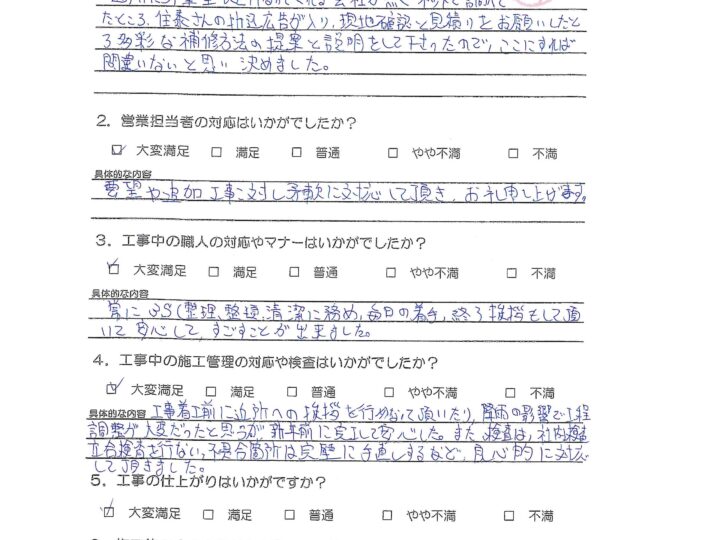 たところ、住泰さんの折込広告が入り、現地確認と見積りをお願いしたとこ
ろ多彩な補修方法の提案と説明をして下さったので、ここにすれば
間違いないと思い 決めました。
2. 営業担当者の対応はいかがでしたか？
☑ 大変満足 □ 満足 □ 普通 □ やや不満 □ 不満
具体的な内容
要望や追加工事に対し柔軟に対応して頂き、お礼申し上げます。
3. 工事中の職人の対応やマナーはいかがでしたか？
☑ 大変満足 □ 満足 □ 普通 □ やや不満 □ 不満
具体的な内容
常に3S(整理、整頓、清潔に務め、毎日の着手、終了挨拶もして頂
いて安心して、すごすことが出来ました。
4. 工事中の施工管理の対応や検査はいかがでしたか？
☑ 大変満足 □ 満足 □ 普通 □ やや不満 □ 不満
具体的な内容 工事着工前に近所への挨拶を行なって頂いたり、降雨の影響で工程
調整が大変だったと思うが新年前に完工して安心した。また検査は、社内検査
立合検査を行ない、不具合箇所は完璧に手直しするなど、良心的に対応
して頂きました。
5. 工事の仕上がりはいかがですか？
☑ 大変満足 □ 満足 □ 普通 □ やや不満 □ 不満